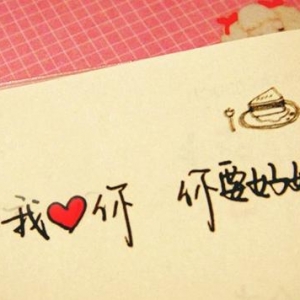 我❤你 你要好好